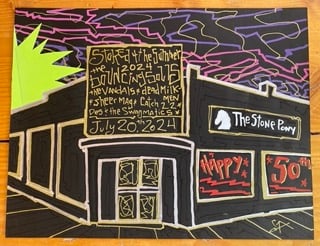 Stoked 4 the Summer
the 2024
BOUNCING SOULS
the Vandals + dead Milk
MEN
+ Sheer Mag + Catch 22
Des + the Swagmatics
July 20th 2024
The Stone Pony
HAPPY
50th